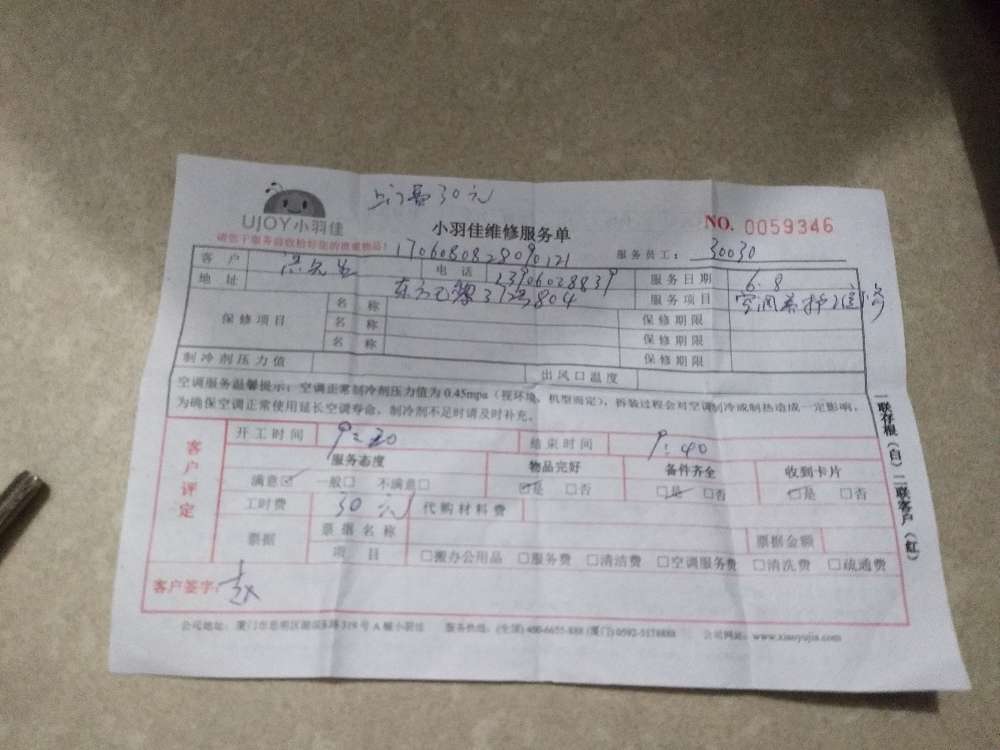 上门费30元
UJOY小羽佳
小羽佳维修服务单
NO. 0059346
请您于服务前收检好您的贵重物品!
1706080828090121
服务员工: 30030
客户
电话
服务日期 6.8
地址 37号804
服务项目 空调
保修项目
名称 保修期限
名称 保修期限
名称 保修期限
制冷剂压力值 出风口温度
空调服务温馨提示:空调正常制冷剂压力值为0.45mpa(视环境、机型而定),拆装过程会对空调制冷或制热造成一定影响,
为确保空调正常使用延长空调寿命,制冷剂不足时请及时补充。
客户评定
开工时间 9:20 结束时间 9:40
服务态度 物品完好 备件齐全 收到卡片
满意☑ 一般□ 不满意□ ☑是 □否 ☑是 □否 ☑是 □否
工时费 30元 代购材料费
票据 票据名称 票据金额
项目 □搬办公用品 □服务费 □清洁费 □空调服务费 □清洗费 □疏通费
客户签字: 赵
一联存根(白)二联客户(红)
服务热线:(全国)400-6655-888 (厦门)0592-5178888 公司网站: www.xiaoyujia.com